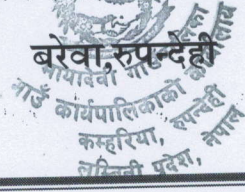 बरेवा,रुपन्देही
गाउँ कार्यपालिकाको
कम्हरिया, रुपन्देही
लुम्बिनी प्रदेश, नेपाल